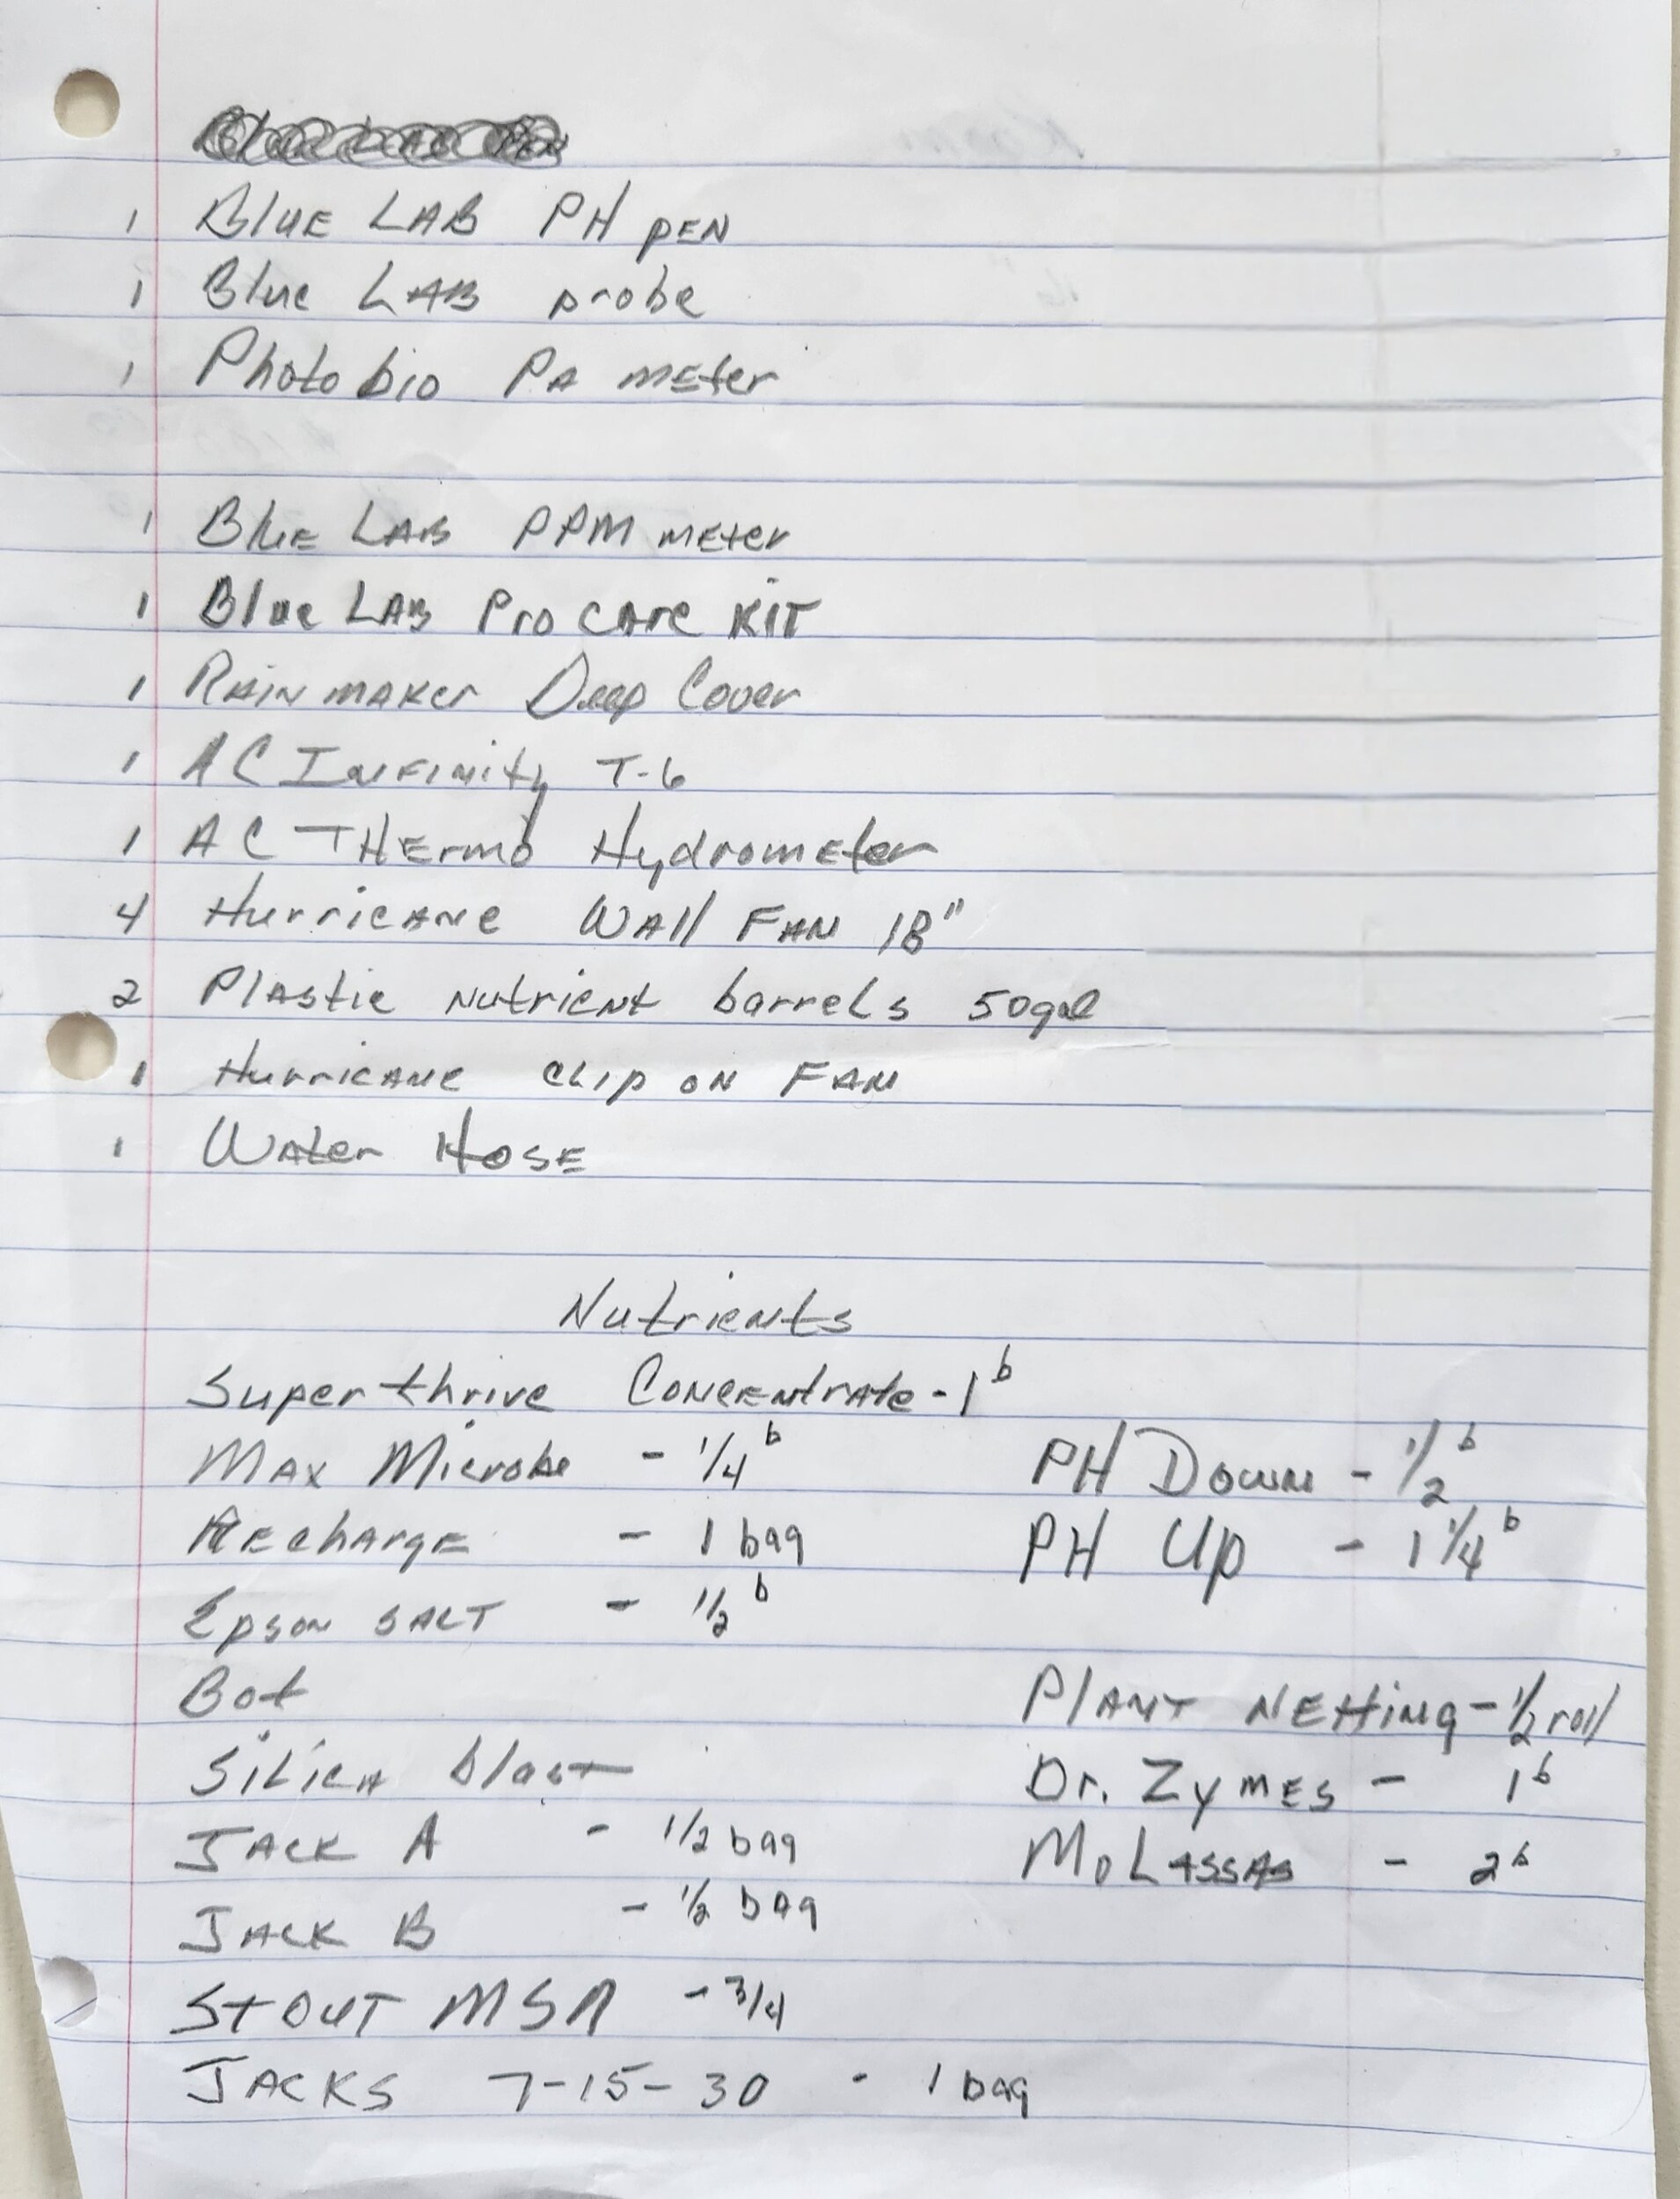 1 Blue LAB PH pEN
1 Blue LAB probe
1 Photo bio PA meter
1 Blue LAB PPM meter
1 Blue LAB Pro care KIT
1 Rain maker Deep Cover
1 AC Infinity T-6
1 AC THermo Hydrometer
4 Hurricane Wall FAN 18"
2 Plastic Nutrient barrels 50gal
1 Hurricane clip on FAN
1 Water Hose
Nutrients
Super thrive Concentrate - 1 b
Max Microbe - 1/4 b
Recharge - 1 bag
Epson SALT - 1/2 b
Bot
Silica blast
JACK A - 1/2 bag
JACK B - 1/2 bag
STOUT MSA - 3/4
JACKS 7-15-30 - 1 bag
PH Down - 1/2 b
PH Up - 1 1/4 b
PLANT NETTing - 1/2 roll
Dr. Zymes - 1 b
MoLassas - 2 b